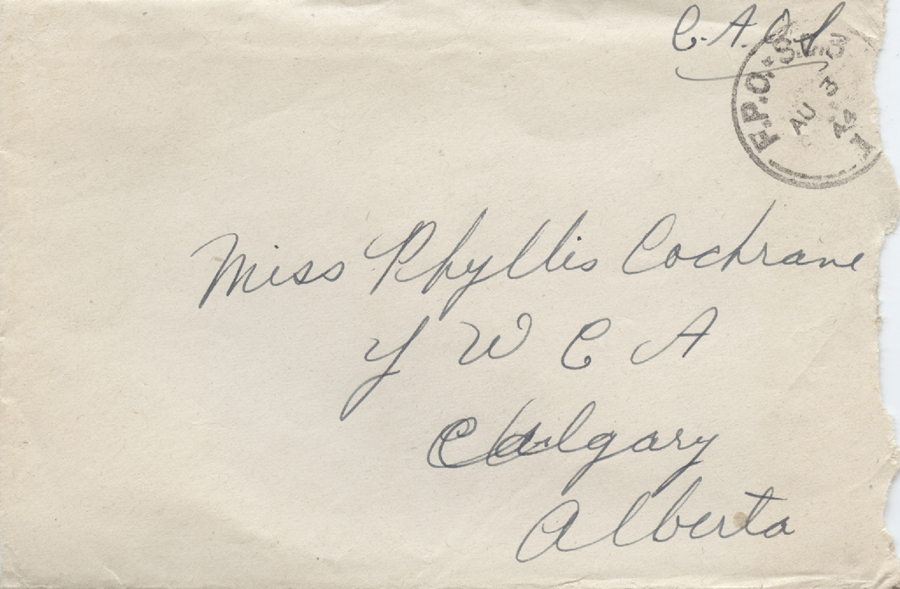 C.A.O.S
F.P.O. S.
AU 3
44
Miss Phyllis Cochrane
Y W C A
Calgary
Alberta